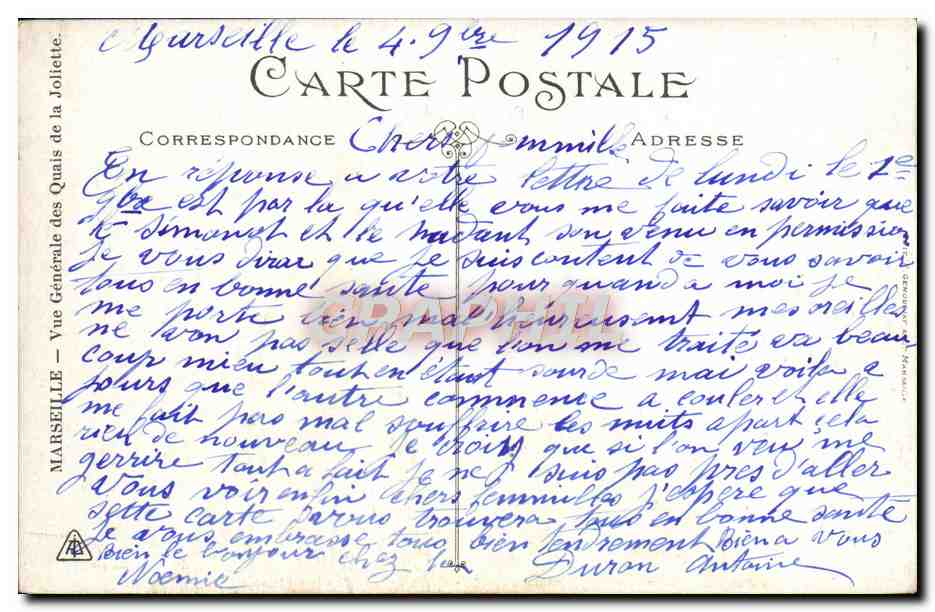 Marseille le 4. 9bre 1915
CARTE POSTALE
CORRESPONDANCE
ADRESSE
Chers
En réponse a votre lettre de lundi le 1e
9bre est par la qu'elle vous me faite savoir que
Simonot et le son venu en permission
Je vous dirai que je suis content de vous savoir
tous en bonne sante pour quand a moi je
me porte bien mal heureusement mes oreilles
ne von pas selle que l'on me traite va beau-
coup mieu tout en étant sourde mai voila
jours que l'autre commence a couler et elle
me fait pas mal souffrire les nuits apart cela
rien de nouveau je crois que si l'on veu me
gerrire tout a fait je ne suis pas pres d'aller
vous voir enfin chers j'espere que
sette carte vous trouvera tous en bonne santé
Je vous embrasse tous bien tendrement Bien a vous
Bien le bonjour chez la
Noemie
Duron Antoine
MARSEILLE — Vue Générale des Quais de la Joliette.
GRAPHTI
MARSEILLE